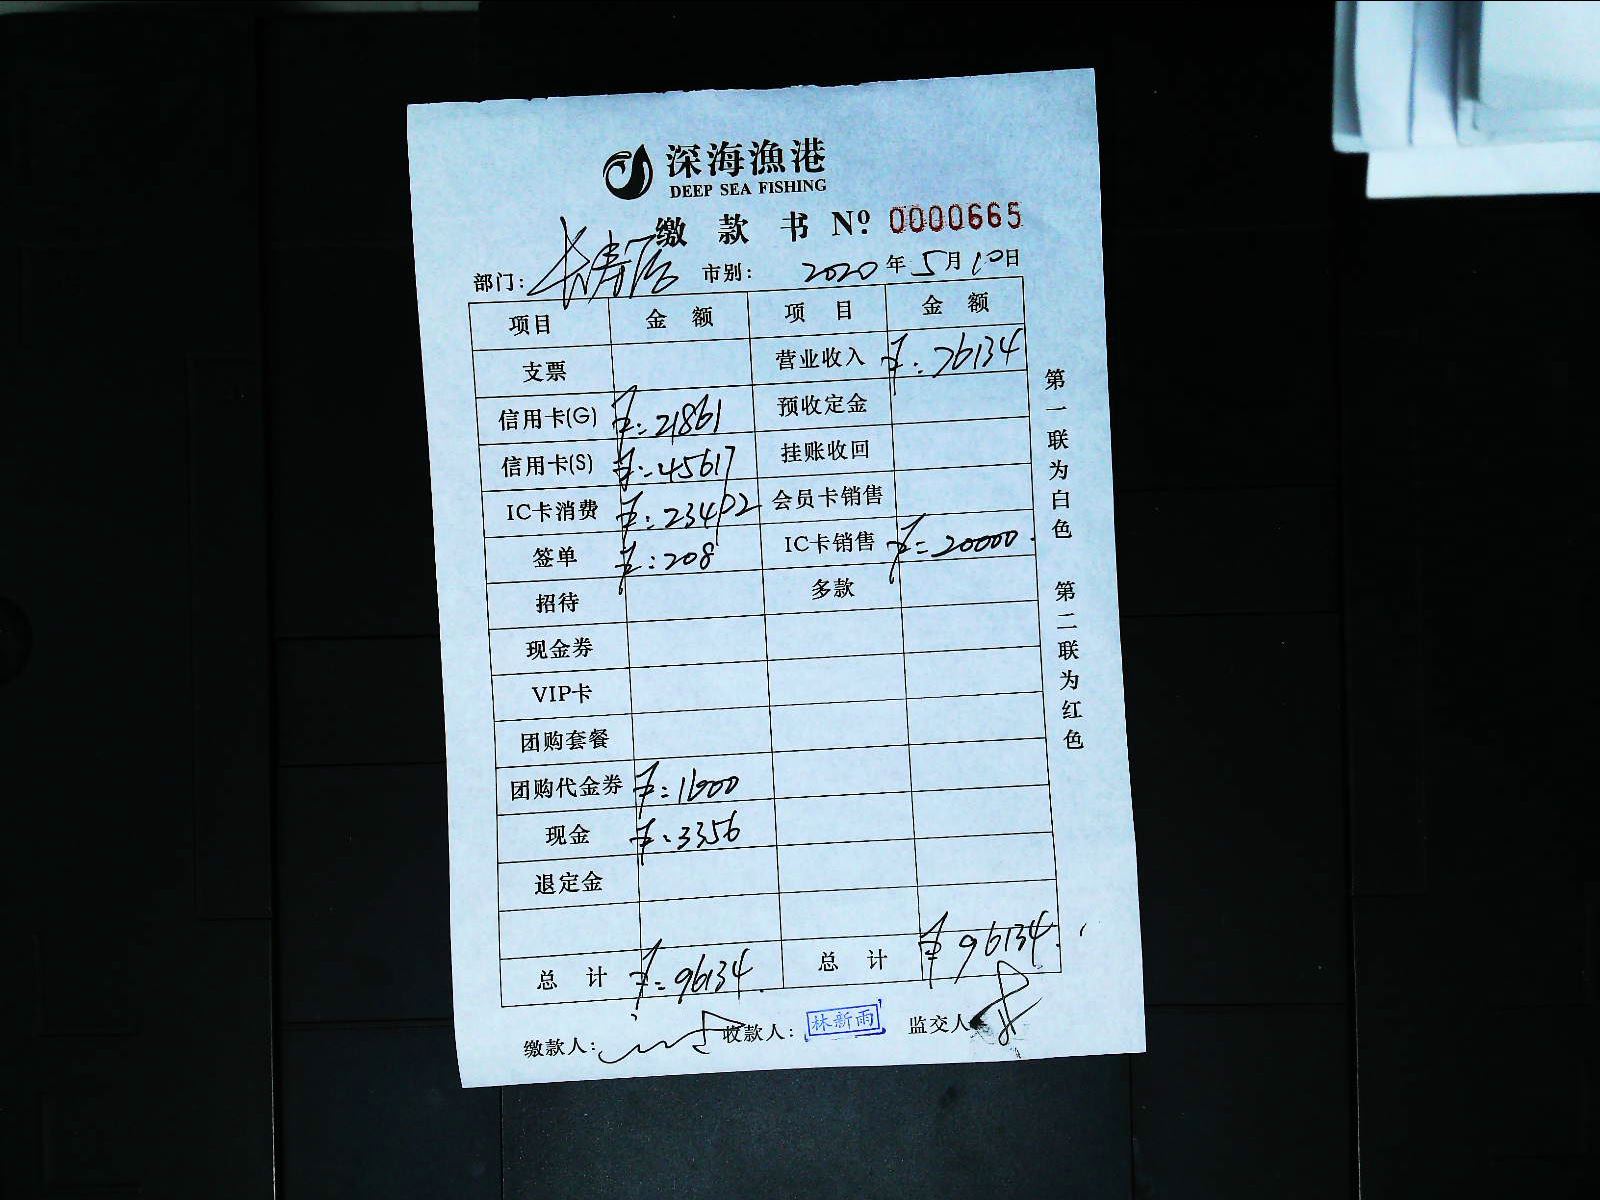 深海漁港
DEEP SEA FISHING
缴款书 Nº: 0000665
部门: 长寿店 市别: 2020年5月10日
项目 金额 项目 金额
支票 营业收入 ¥:76134
信用卡(G) ¥:21861 预收定金
信用卡(S) ¥:45617 挂账收回
IC卡消费 ¥:23492 会员卡销售
签单 ¥:208 IC卡销售 ¥=20000.
招待 多款
现金券
VIP卡
团购套餐
团购代金券 ¥:1600
现金 ¥:3356
退定金
总计 ¥:96134. 总计 ¥96134.
缴款人: 收款人: 林新雨 监交人
第一联为白色 第二联为红色